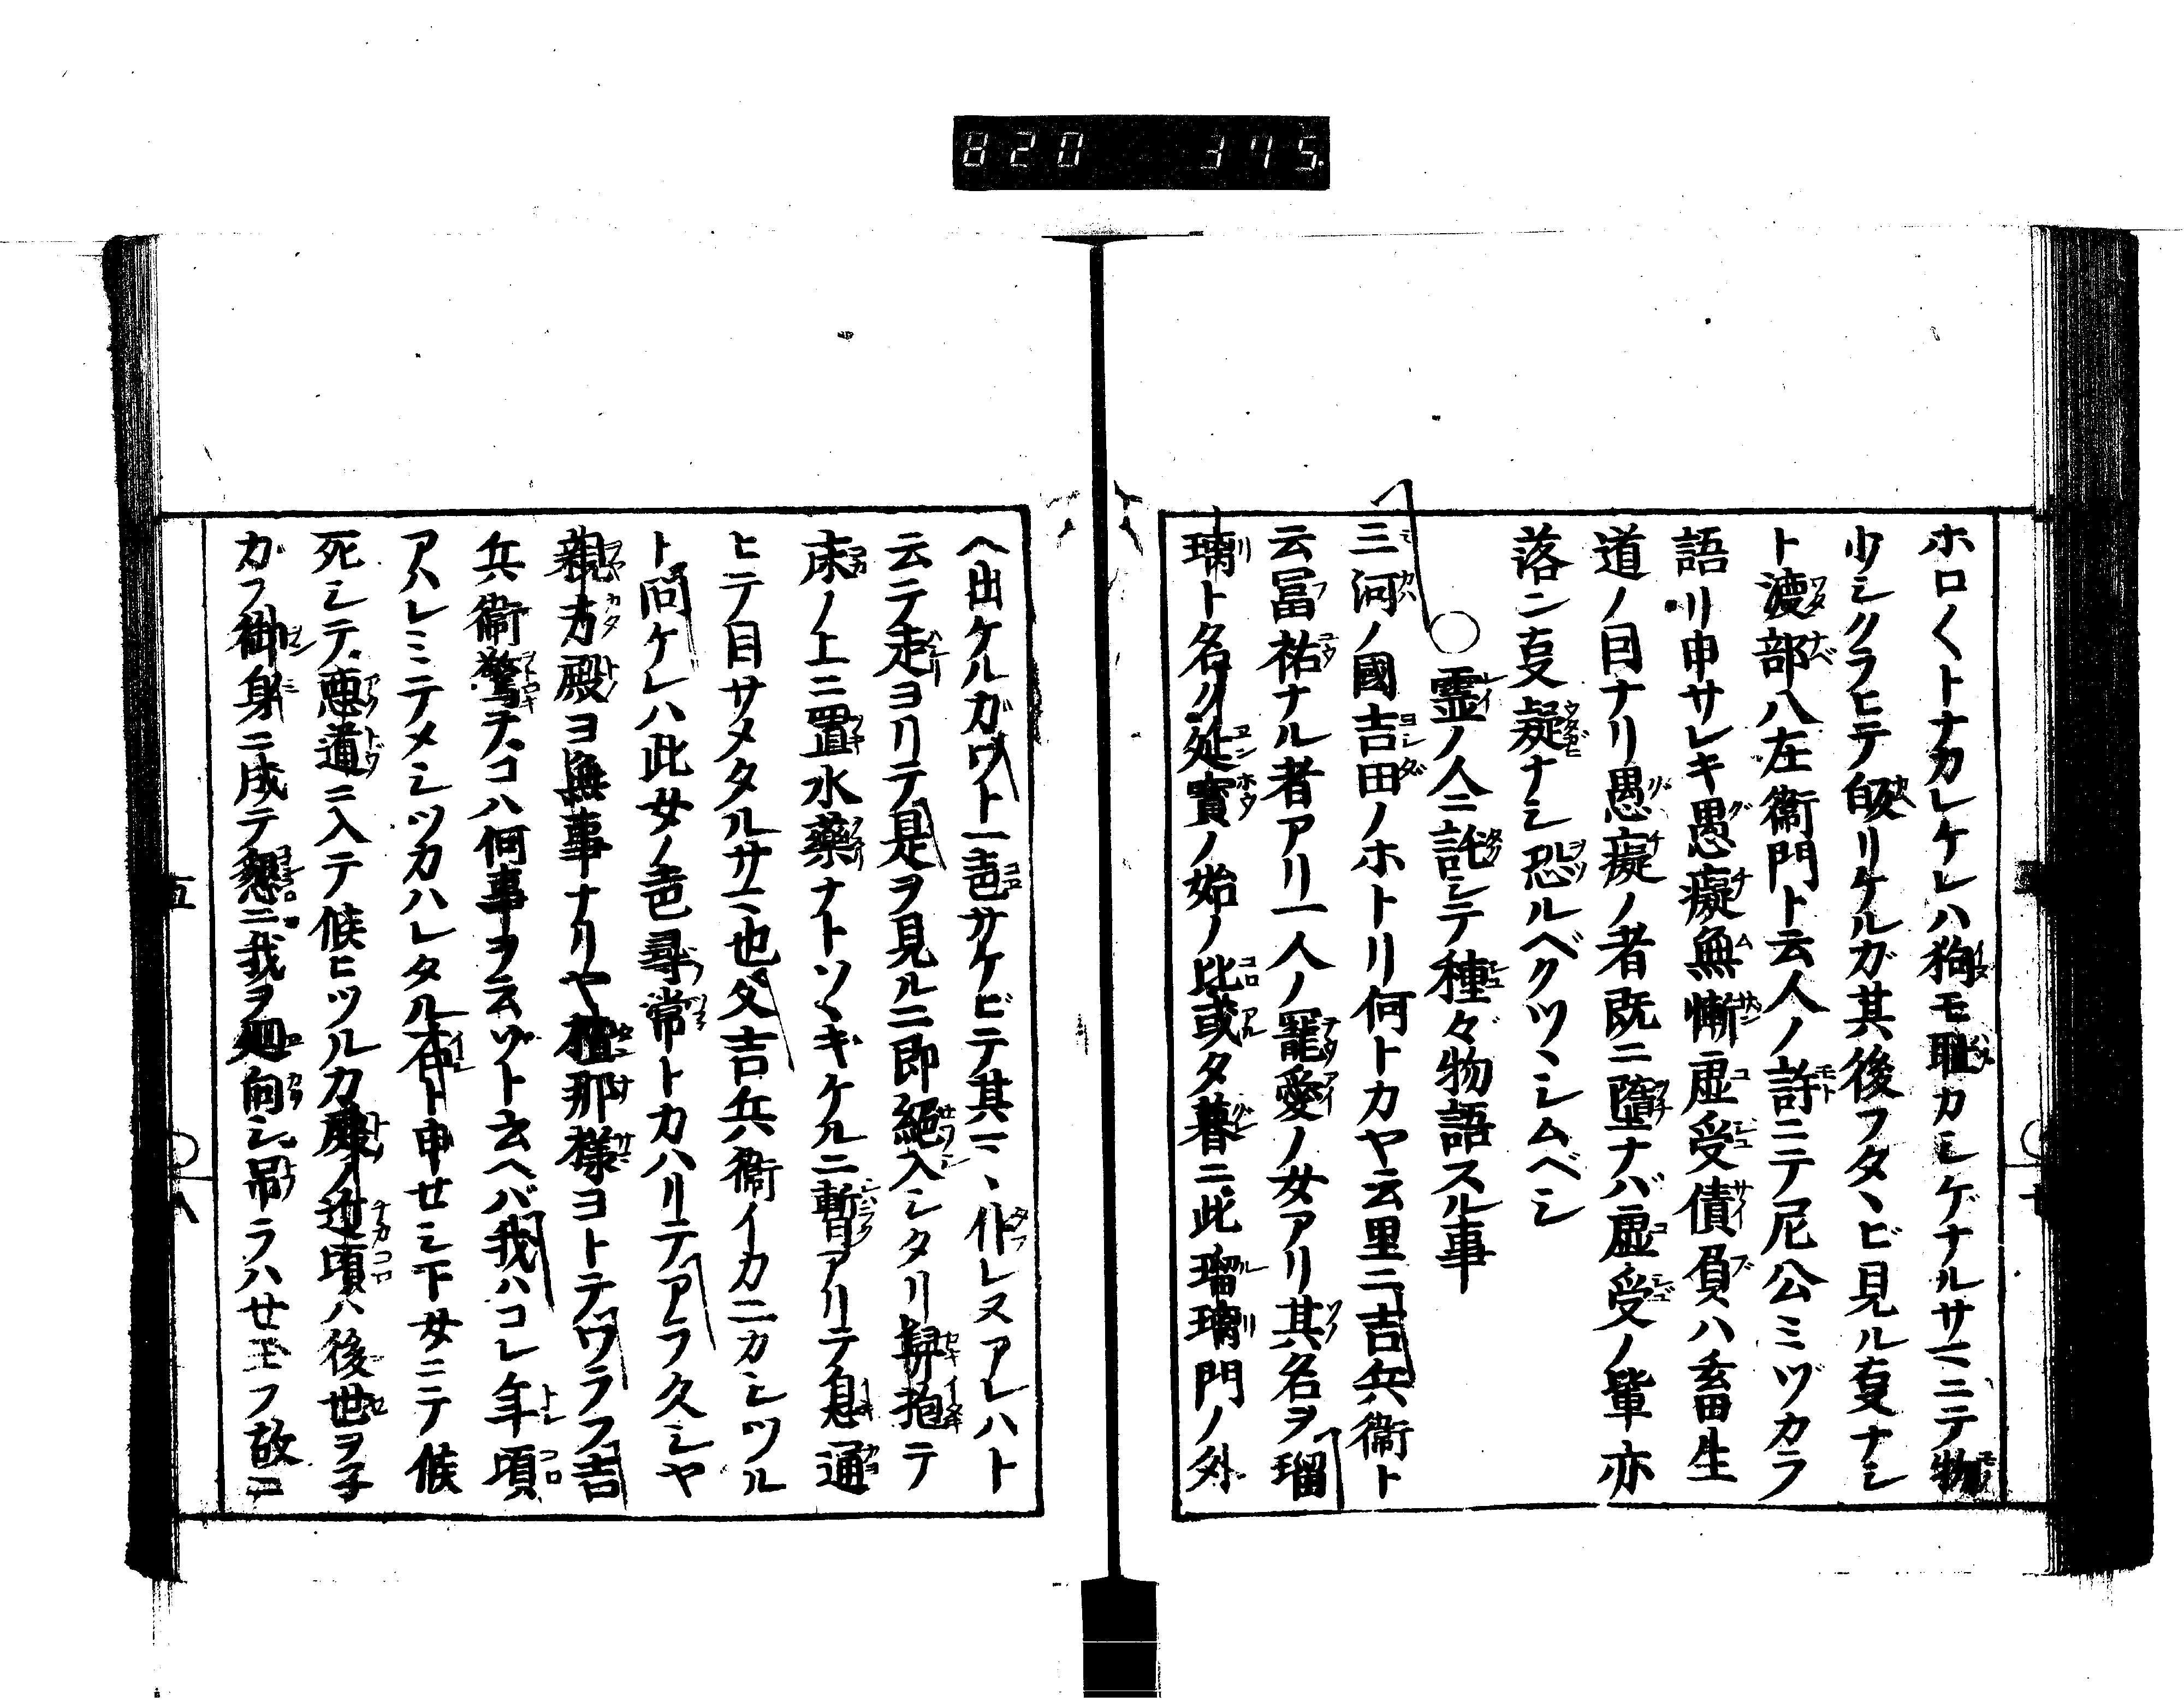 820 375.
ホロ〱トナカレケレハ狗モ耻カシゲナルサマニテ物
少シクラヒテ皈リケルガ其後フタヽビ見ル亊ナシ
ト渡部八左衞門ト云人ノ許ニテ尼公ミヅカラ
語リ申サレキ愚癡無慚虚受債負ハ畜生
道ノ因ナリ愚癡ノ者既ニ墮ナバ虚受ノ輩亦
落ン亊疑ナシ恐ルベクツヽシムベシ
○霊ノ人ニ託シテ種々物語スル事
三河ノ國吉田ノホトリ何トカヤ云里ニ吉兵衞ト
云冨祐ナル者アリ一人ノ寵愛ノ女アリ其名ヲ瑠
璃ト名ク延寳ノ始ノ比或夕暮ニ此瑠璃門ノ外
ヘ出ケルガワト一声サケビテ其マヽ仆レヌアレハト
云テ走ヨリテ是ヲ見ルニ即絕入シタリ擗抱テ
床ノ上ニ置水藥ナトソヽキケルニ暫アリテ息通
ヒテ目サメタルサマ也父吉兵衞イカニカシツル
ト問ケレハ此女ノ声尋常トカハリテアラ久シヤ
親方殿ヨ無事ナリヤ檀那様ヨトテワラフ吉
兵衞驚テコハ何事ヲ云ゾト云ヘバ我ハコレ年頃
アハレミテメシツカハレタル有ト申セシ下女ニテ候
死シテ悪道ニ入テ候ヒツルカ殿ノ近頃ハ後世ヲ子
カフ御身ニ成テ懇ニ我ヲ廻向シ吊ラハセ玉フ故ニ
五